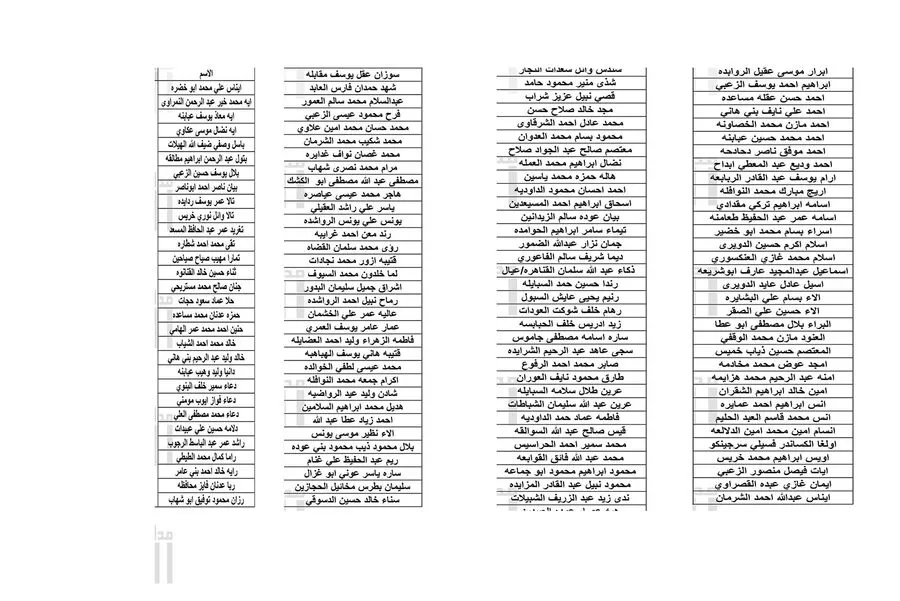 ابرار موسى عقيل الروابده
ابراهيم احمد يوسف الزعبي
احمد حسن عقله مساعده
احمد علي نايف بني هاني
احمد مازن محمد الخصاونه
احمد محمد حسين عبابنه
احمد موفق ناصر دحادحه
احمد وديع عبد المعطي ابداح
ارام يوسف عبد القادر الربابعه
اريج مبارك محمد النوافله
اسامه ابراهيم تركي مقدادي
اسامه عمر عبد الحفيظ طعامنه
اسراء بسام محمد ابو خضير
اسلام اكرم حسين الدويرى
اسلام محمد غازي العنكسوري
اسماعيل عبدالمجيد عارف ابوشريعه
اسيل عادل عايد الدويرى
الاء بسام علي البشايره
الاء حسين علي الصقر
البراء بلال مصطفى ابو عطا
العنود مازن محمد الوقفي
المعتصم حسين ذياب خميس
امجد عوض محمد مخادمه
امنه عبد الرحيم محمد هزايمه
امين خالد ابراهيم الشقران
انس ابراهيم احمد عمايره
انس محمد قاسم العبد الحليم
انسام امين محمد امين الدلالعه
اولغا الكساندر فسيلي سرجينكو
اويس ابراهيم محمد خريس
ايات فيصل منصور الزعبي
ايمان غازي عبده القصراوي
ايناس عبدالله احمد الشرمان
سندس وائل سعدات النجار
شذى منير محمود حامد
قصي نبيل عزيز شراب
مجد خالد صلاح حسن
محمد عادل احمد الشرقاوى
محمود بسام محمد العدوان
معتصم صالح عبد الجواد صلاح
نضال ابراهيم محمد العمله
هاله حمزه محمد ياسين
احمد احسان محمود الداوديه
اسحاق ابراهيم احمد المسيعدين
بيان عوده سالم الزيدانين
تيماء سامر ابراهيم الحوامده
جمان نزار عبدالله الضمور
ديما شريف سالم الفاعوري
ذكاء عبد الله سلمان القناهره/عيال
رندا حسين حمد السبايله
رنيم يحيى عايش السبول
رهام خلف شوكت العودات
زيد ادريس خلف الحبابسه
ساره اسامه مصطفى جاموس
سجى عاهد عبد الرحيم الشرايده
صابر محمد احمد الرفوع
طارق محمود نايف العوران
عرين طلال سلامه السبايله
عرين عبد الله سليمان الشباطات
فاطمه عماد حمد الداوديه
قيس صالح عبد الله السوالقه
محمد سمير احمد الحراسيس
محمد عبد الله فائق القوابعه
محمود ابراهيم محمود ابو جماعه
محمود نبيل عبد القادر المزايده
ندى زيد عبد الزريف الشبيلات
سوزان عقل يوسف مقابله
شهد حمدان فارس العابد
عبدالسلام محمد سالم العمور
فرح محمود عيسى الزعبي
محمد حسان محمد امين علاوي
محمد شكيب محمد الشرمان
محمد غصان نواف غدايره
مرام محمد نصرى شهاب
مصطفى عبد الله مصطفى ابو الكشك
هاجر محمد عيسى عياصره
ياسر علي راشد العقيلي
يونس علي يونس الرواشده
رند معن احمد غرايبه
رؤى محمد سلمان القضاه
قتيبه ازور محمد نجادات
لما خلدون محمد السيوف
اشراق جميل سليمان البدور
رماح نبيل احمد الرواشده
عاليه عمر علي الخشمان
عمار عامر يوسف العمري
فاطمه الزهراء وليد احمد العضايله
قتيبه هاني يوسف الهباهبه
محمد عيسى لطفي الخوالده
اكرام جمعه محمد النوافله
شادن وليد عيد الرواضيه
هديل محمد ابراهيم السلامين
احمد زياد عطا عبد الله
الاء نظير موسى يونس
بلال محمود ذيب محمود بني عوده
ريم عبد الحفيظ علي غنام
ساره ياسر عوني ابو غزال
سليمان بطرس مخائيل الحجازين
سناء خالد حسين الدسوقي
الاسم
ايناس علي محمد ابو خضره
ايه محمد خير عبد الرحمن النمراوي
ايه معاذ يوسف عبابنه
ايه نضال موسى عكاوي
باسل وصفي ضيف الله الهيلات
بتول عبد الرحمن ابراهيم مطالقه
بلال يوسف حسين الزعبي
بيان ناصر احمد ابوناصر
تالا عمر يوسف ردايده
تالا وائل نوري خريس
تغريد عمر عبد الحافظ المسعد
تقى محمد احمد شطاره
تمارا مهيب صباح صباحين
ثناء حسين خالد القانوه
جنان صالح محمد مستريحي
حلا عماد سعود حجات
حمزه عدنان محمد مساعده
حنين احمد محمد عمر الهامي
خالد محمد احمد الشياب
خالد وليد عبد الرحيم بني هاني
دانيا وليد وهيب عبابنه
دعاء سمير خلف البنوي
دعاء فواز ايوب مومني
دعاء محمد مصطفى العلي
دلامه حسين علي عبيدات
راشد عمر عبد الباسط الرجوب
راما كمال محمد الطيطي
رايه خالد احمد بني عامر
ربا عدنان فايز محافظه
رزان محمود توفيق ابو شهاب
مدا